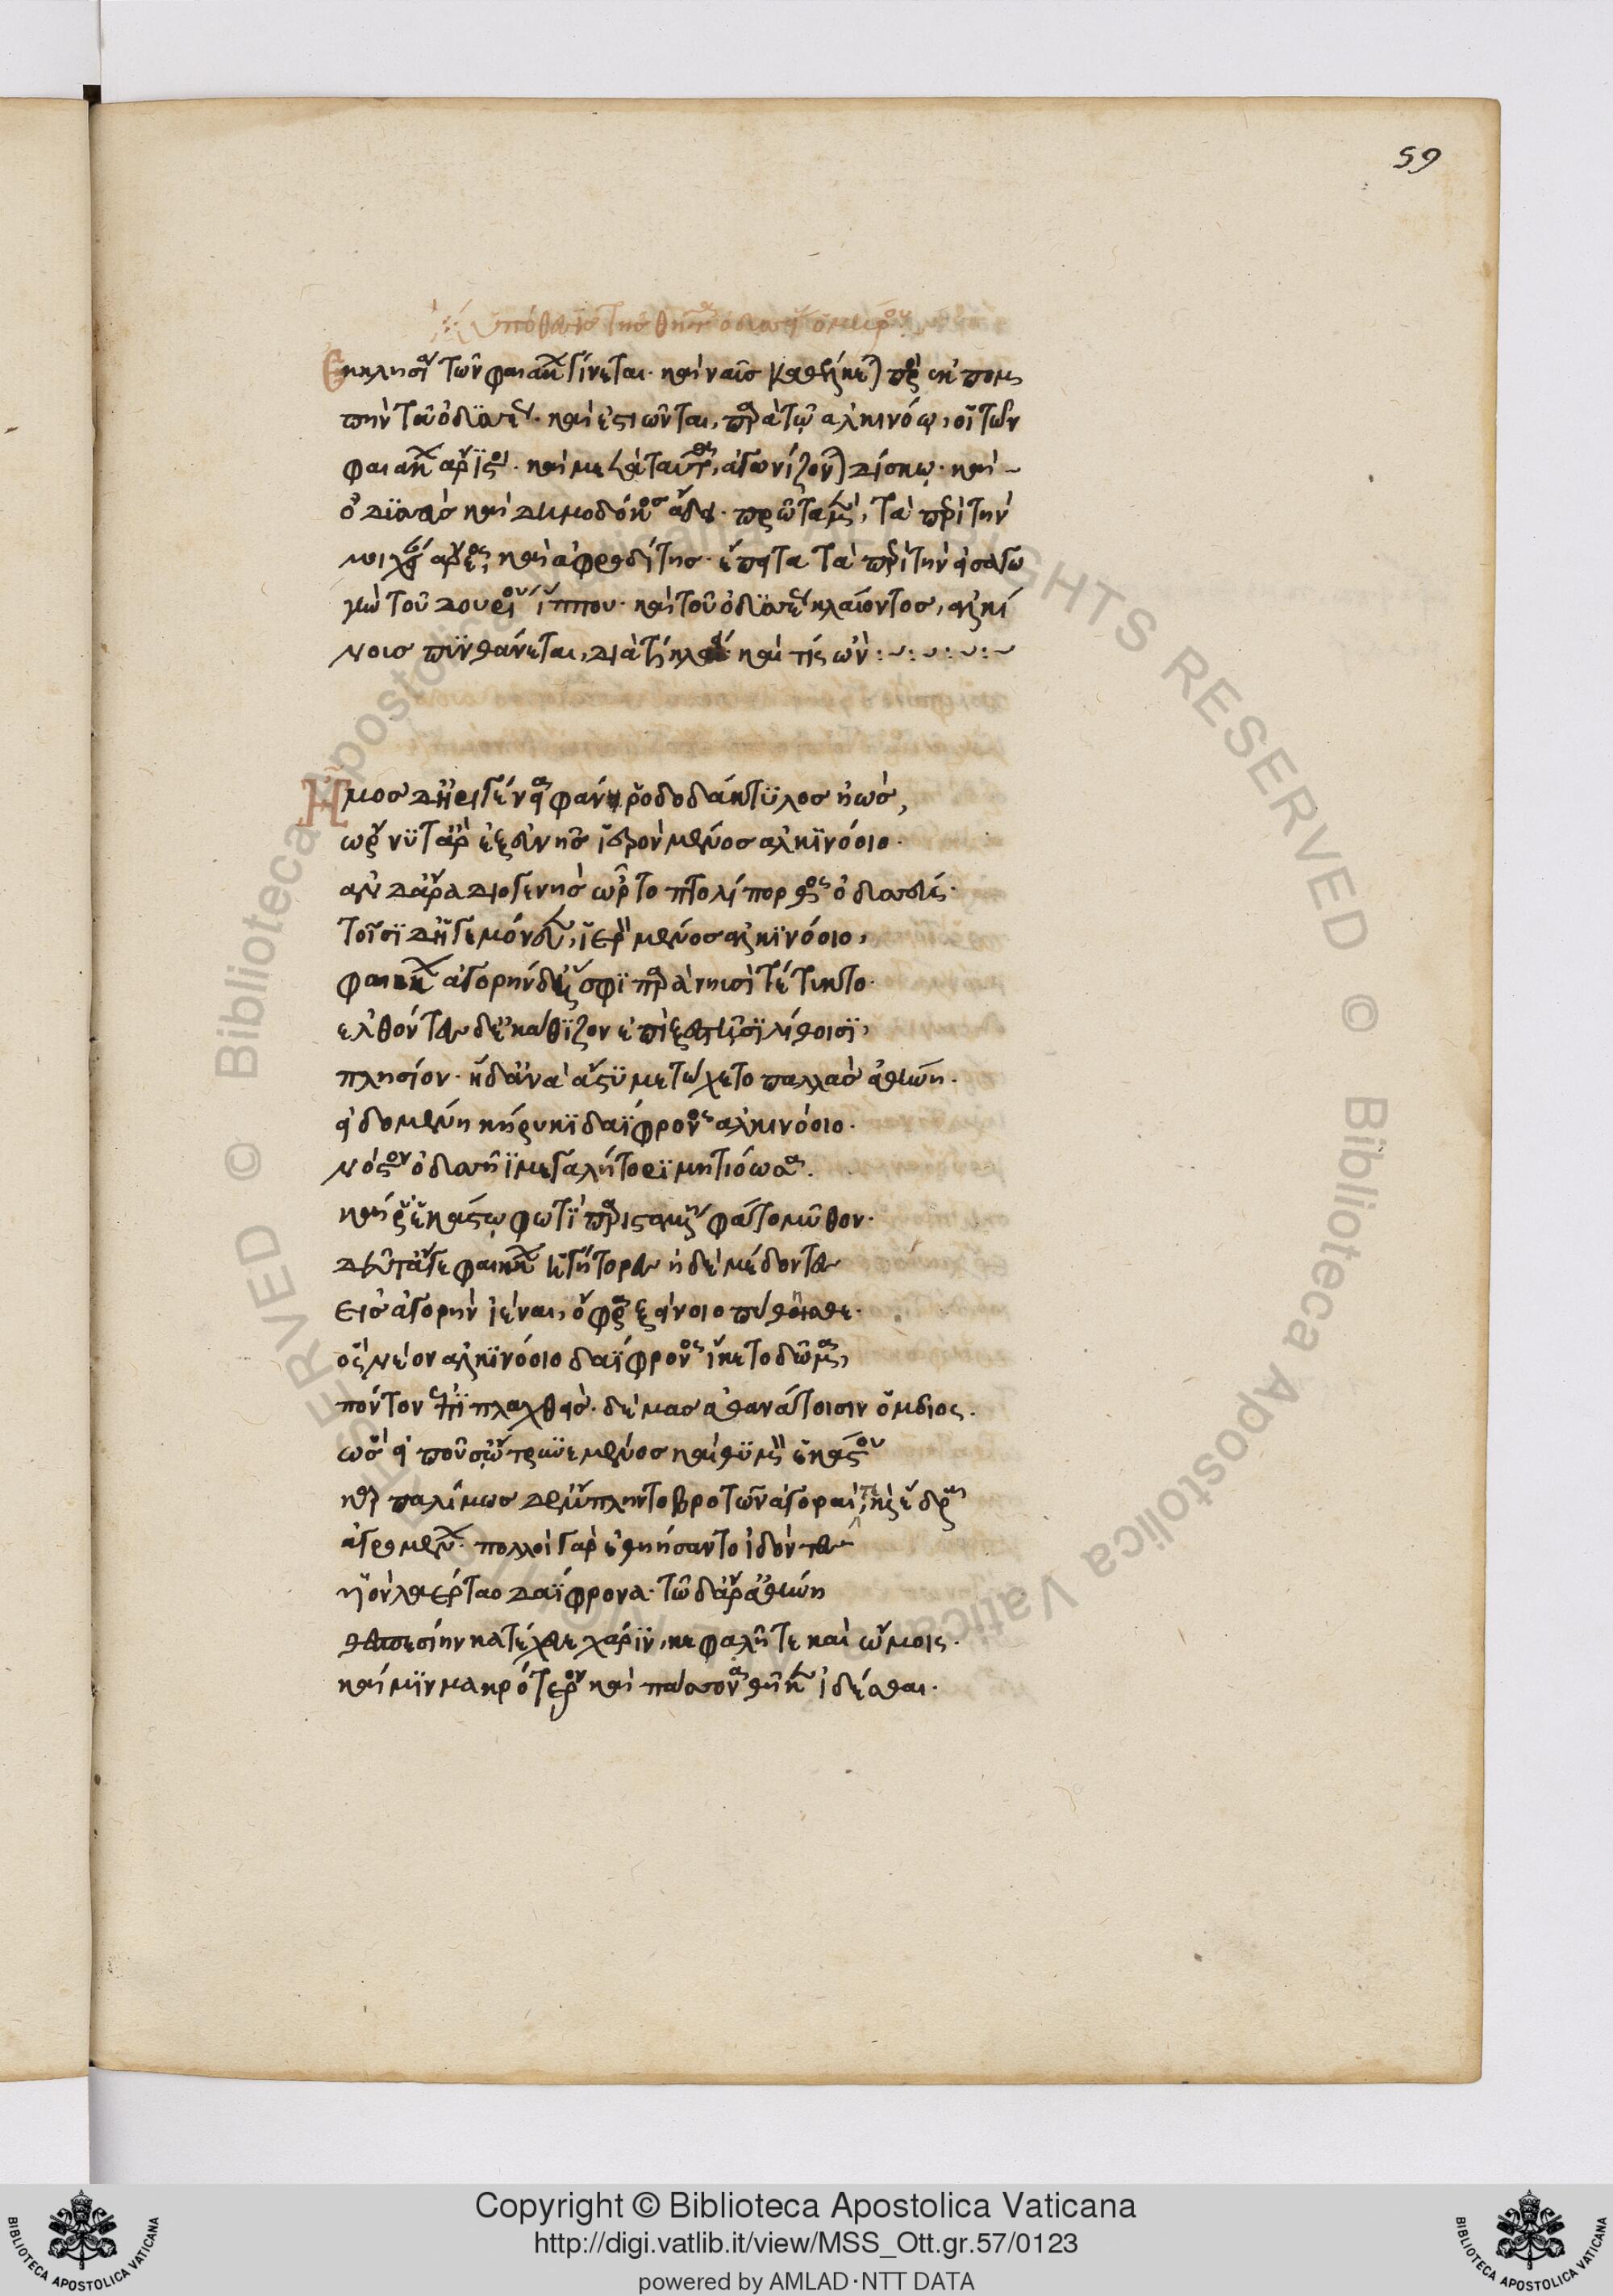 59
ὑπόθεσις τῆς θῆτα ὀδυσσείας ὁμήρου
Ἐκκλησία τῶν φαιάκων γίνεται· καὶ ναῦς καθέλκεται πρὸς ἐκπομ
πὴν τοῦ ὀδυσσέως· καὶ ἑστιῶνται παρὰ τῷ ἀλκινόῳ, οἱ τῶν
φαιάκων ἄριστοι· καὶ μετὰ ταῦτα, ἀγωνίζονται δίσκῳ· καὶ
ὀδυσσεὺς καὶ δημόδοκος ᾄδει· πρῶτα μὲν, τὰ περὶ τὴν
μοιχείαν ἄρεος, καὶ ἀφροδίτης· ἔπειτα τὰ περὶ τὴν εἰσαγω
γὴν τοῦ δουρείου ἵππου· καὶ τοῦ ὀδυσσέως κλαίοντος, ἀλκί
νοος πυνθάνεται, διὰ τί κλαίει καὶ τίς ὢν :~:~:~:~
Ἦμος δ' ἠριγένεια φάνη ῥοδοδάκτυλος ἠὼς,
ὤρνυτ' ἄρ' ἐξ εὐνῆς ἱερὸν μένος ἀλκινόοιο·
ἂν δ' ἄρα διογενὴς ὦρτο πτολίπορθος ὀδυσσεύς·
τοῖσι δ' ἡγεμόνευεν, ἱερὸν μένος ἀλκινόοιο,
φαιήκων ἀγορήνδε, ἥ σφι παρὰ νηυσὶ τέτυκτο·
ἐλθόντες δὲ κάθιζον ἐπὶ ξεστοῖσι λίθοισι,
πλησίον· ἡ δ' ἀνὰ ἄστυ μετώχετο παλλὰς ἀθήνη·
εἰδομένη κήρυκι δαΐφρονος ἀλκινόοιο·
νόστον ὀδυσσῆϊ μεγαλήτορι μητιόωσα·
καί ῥα ἑκάστῳ φωτὶ παρισταμένη φάτο μῦθον·
δεῦτ' ἄγε φαιήκων ἡγήτορες ἠδὲ μέδοντες
εἰς ἀγορὴν ἰέναι, ὄφρα ξείνοιο πύθησθε·
ὃς νέον ἀλκινόοιο δαΐφρονος ἵκετο δῶμα,
πόντον ἐπιπλαχθεὶς· δέμας ἀθανάτοισιν ὅμοιος·
ὣς εἰποῦσ' ὤτρυνε μένος καὶ θυμὸν ἑκάστου
καρπαλίμως δ' ἔμπληντο βροτῶν ἀγοραί τε καὶ ἕδραι
ἀγρομένων· πολλοὶ γὰρ ἐθηήσαντο ἰδόντες
υἱὸν λαέρταο δαΐφρονα· τῷ δ' ἄρ' ἀθήνη
θεσπεσίην κατέχευε χάριν, κεφαλῇ τε καὶ ὤμοις·
καί μιν μακρότερον καὶ πάσσονα θῆκεν ἰδέσθαι·
Copyright © Biblioteca Apostolica Vaticana
http://digi.vatlib.it/view/MSS_Ott.gr.57/0123
powered by AMLAD·NTT DATA